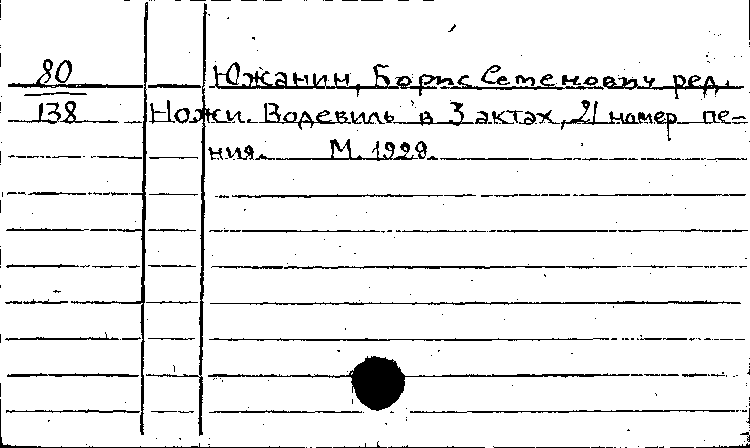 80
Южанин, Борис Семенович ред.
138
Ножи. Водевиль в 3 актах, 21 номер пе-
ния. М. 1929.